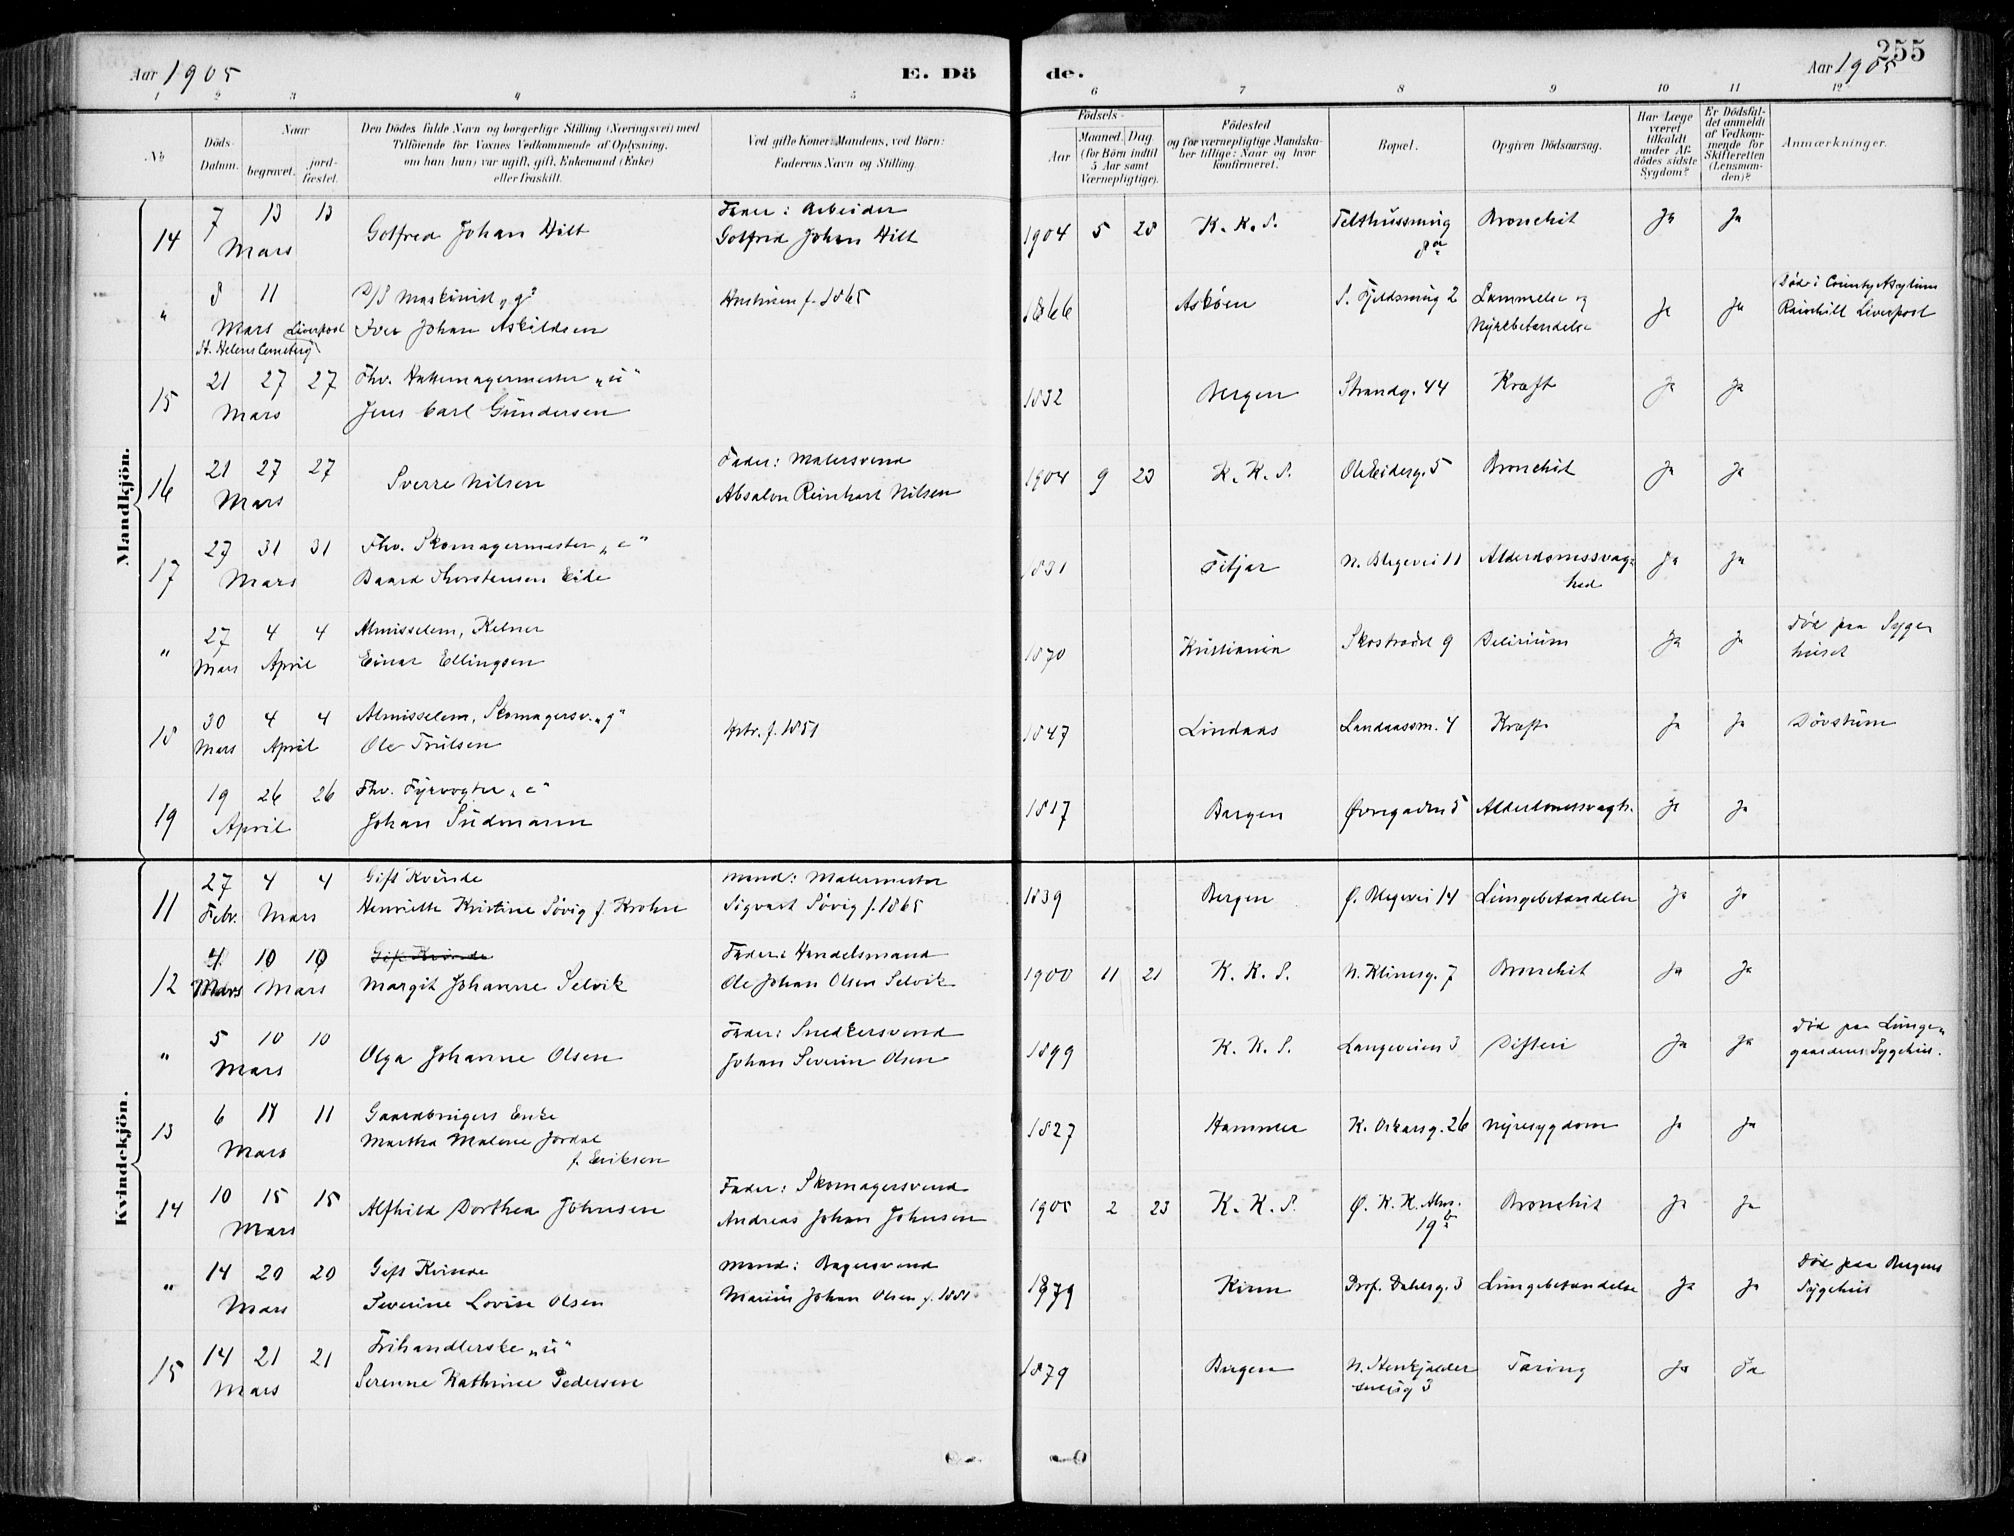 Aar 1905 E. Dö de. Aar 1905 255
1 2 3 4 5 6 7 8 9 10 11 12
№ Döds-Datum. Naar begravet. jordfæstet. Den Dödes fulde Navn og borgerlige Stilling (Næringsvei) med Tilföiende for Voxnes Vedkommende af Oplysning, om han (hun) var ugift, gift, Enkemand (Enke) eller fraskilt. Ved gifte Koner: Mandens, ved Börn: Faderens Navn og Stilling. Födsels- Aar Maaned. Dag. (for Börn indtil 5 Aar samt Værnepligtige). Födested og for værnepligtige Mandskaber tillige: Naar og hvor konfirmeret. Bopæl. Opgiven Dödsaarsag. Har Læge været tilkaldt under Afdödes sidste Sygdom? Er Dödsfaldet anmeldt af Vedkommende for Skifteretten (Lensmanden)? Anmærkninger.
Mandkjön.
14 7 13 13 Mars Gotfred Johan Hilt Fader: Arbeider Gotfred Johan Hilt 1904 5 28 K. K. S. Telthussmug 8a Bronchit Ja Ja
" 8 11 Mars Liverpool St. Helens Cemetery D/S Maskinist „g" Iver Johan Askildsen Hustruen f. 1865 1866 Asköen S. Fjeldsmug 2 Lammelse og Nyrebetændelse Ja Ja Död i County Asylum Rainhill Liverpool
15 21 27 27 Mars Fhv. Hattemagermester „u" Jens Carl Gundersen 1832 Bergen Strandg. 44 Kræft Ja Ja
16 21 27 27 Mars Sverre Nilsen Fader: Malersvend Absalon Reinhart Nilsen 1904 9 23 K. K. S. Ole Eidesg. 5 Bronchit Ja Ja
17 27 31 31 Mars Fhv. Skomagermester „e" Baard Thorstensen Eide 1831 Fitjar N. Blegevei 11 Alderdomssvaghed Ja Ja
" 27 Mars 4 4 April Almisselem, Kelner Einar Ellingsen 1870 Kristiania Skostrædet 9 Delirium Ja Ja Död paa Sygehuset
18 30 Mars 4 4 April Almisselem, Skomagersv. „g" Ole Trulsen Hstr. f. 1851 1847 Lindaas Landaassm. 4 Kræft Ja Ja Dövstum
19 19 26 26 April Fhv. Fyrvogter „e" Johan Sudmann 1817 Bergen Øvregaden 5 Alderdomssvagh. Ja Ja
Kvindekjön.
11 27 Febr. 4 4 Mars Gift Kvinde Henriette Kristine Sövig f. Krohn Mand: Malermester Sigvart Sövig f. 1865 1839 Bergen Ø. Blegevei 14 Lungebetændelse Ja Ja
12 4 Mars 10 10 Mars Gift Kvinde Margit Johanne Selvik Fader: Handelsmand Ole Johan Olsen Selvik 1900 11 21 K. K. S. N. Klinesg. 7 Bronchit Ja Ja
" 5 10 10 Mars Olga Johanne Olsen Fader: Snedkersvend Johan Severin Olsen 1899 K. K. S. Langeveien 3 Difteri Ja Ja Död paa Lungegaardens Sygehus.
13 6 11 11 Mars Gaardbrugers Enke Martha Malene Jordal f. Eriksen 1827 Hammer K. Oskarsg. 26 Nyresygdom Ja Ja
14 10 15 15 Mars Alfhild Dorthea Johnsen Fader: Skomagersvend Andreas Johan Johnsen 1905 2 23 K. K. S. Ø. K. K. Alm. 19b Bronchit Ja Ja
" 14 20 20 Mars Gift Kvinde Severine Lovise Olsen Mand: Bagersvend Marius Johan Olsen f. 1881 1879 Kinn Prof. Dahlsg. 3 Lungebetændelse Ja Ja Död paa Bergens Sygehus
15 14 21 21 Mars Frihandlerske „u" Serenne Kathrine Pedersen 1879 Bergen Tæring Ja Ja